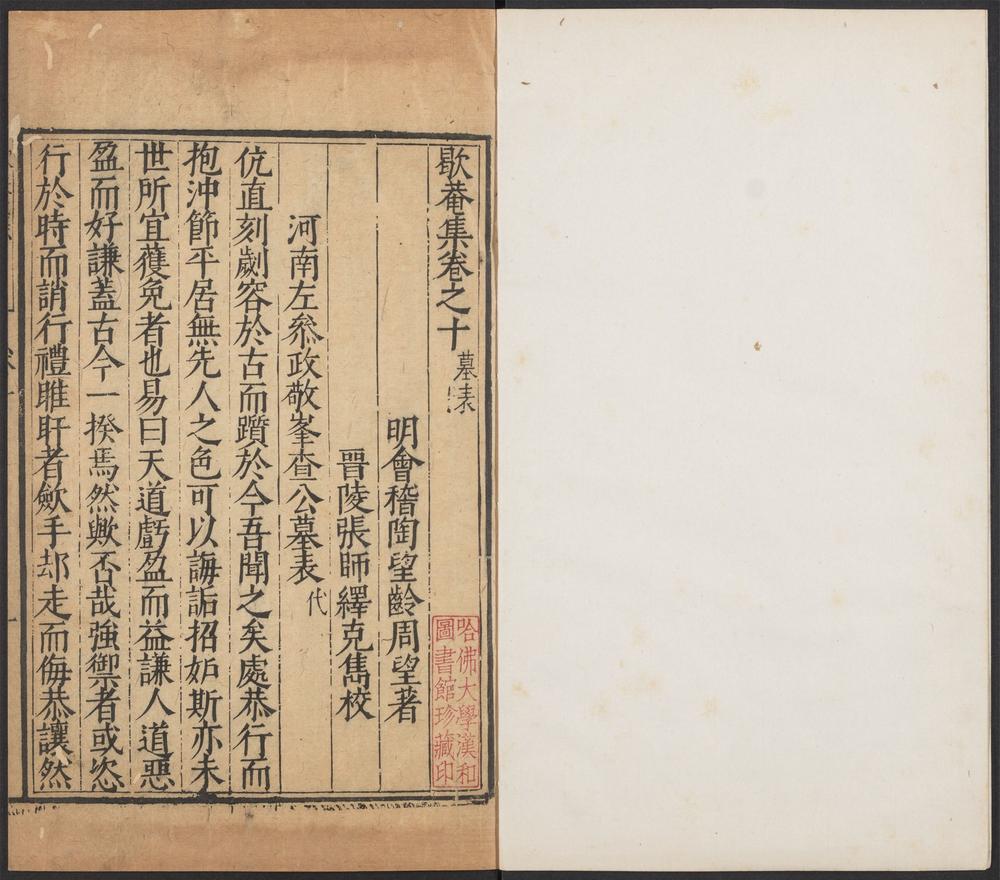 歇菴集卷之十 墓表
明會稽陶望齡周望著
晉陵張師繹克雋校
河南左叅政敬峯查公墓表 代
伉直刻劌容於古而躓於今吾聞之矣處恭行而
抱沖節平居無先人之色可以誨詬招妒斯亦未
世所宜蠖免者也易曰天道虧盈而益謙人道惡
盈而好謙蓋古今一揆焉然歟否哉強禦者或恣
行於時而誚行禮睢盱者歛手却走而侮恭讓然
哈佛大學漢和
圖書館珍藏印